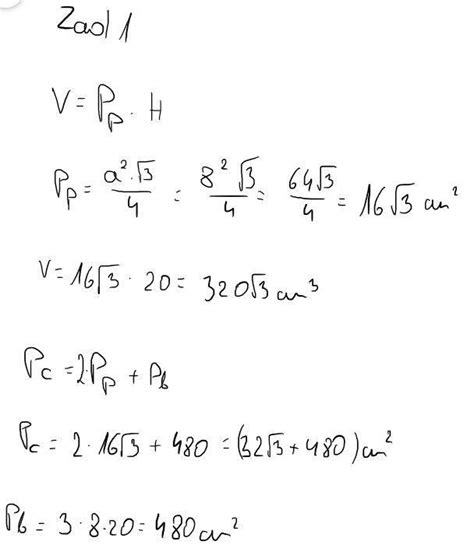 Zad 1
V = Pp · H
Pp = a²·√3/4 = 8²√3/4 = 64√3/4 = 16√3 cm²
V = 16√3 · 20 = 320√3 cm³
Pc = 2·Pp + Pb
Pc = 2·16√3 + 480 = (32√3 + 480) cm²
Pb = 3·8·20 = 480 cm²